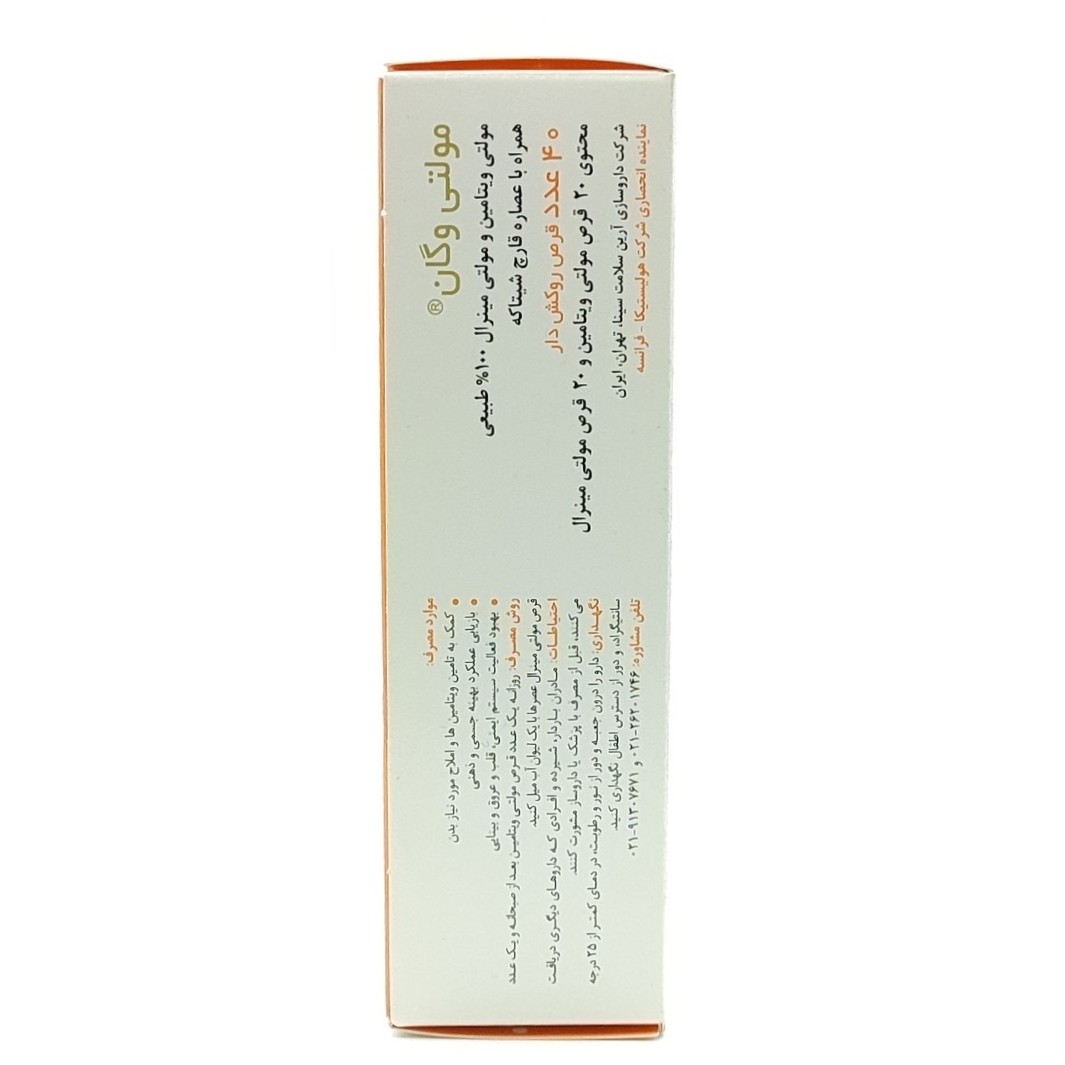 مولتی وگان®
مولتی ویتامین و مولتی مینرال ۱۰۰% طبیعی
همراه با عصاره قارچ شیتاکه
۴۰ عدد قرص روکش دار
محتوی ۲۰ قرص مولتی ویتامین و ۲۰ قرص مولتی مینرال
شرکت داروسازی آرین سلامت سینا، تهران، ایران
نماینده انحصاری شرکت هولیستیکا - فرانسه
موارد مصرف:
• کمک به تامین ویتامین ها و املاح مورد نیاز بدن
• بازیابی عملکرد بهینه جسمی و ذهنی
• بهبود فعالیت سیستم ایمنی، قلب و عروق و بینایی
روش مصرف: روزانه یک عدد قرص مولتی ویتامین بعد از صبحانه و یک عدد
قرص مولتی مینرال عصرها با یک لیوان آب میل کنید.
احتیاطات: مادران باردار، شیرده و افرادی که داروهای دیگری دریافت
می‌کنند، قبل از مصرف با پزشک یا داروساز مشورت کنند.
نگهداری: دارو را درون جعبه و دور از نور و رطوبت، در دمای کمتر از ۲۵ درجه
سانتیگراد، و دور از دسترس اطفال نگهداری کنید.
تلفن مشاوره: ۰۲۱-۲۶۲۰۱۷۴۶ و ۰۲۱-۹۱۳۰۷۶۷۱